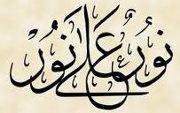 نُورٌ عَلَىٰ نُورٌ